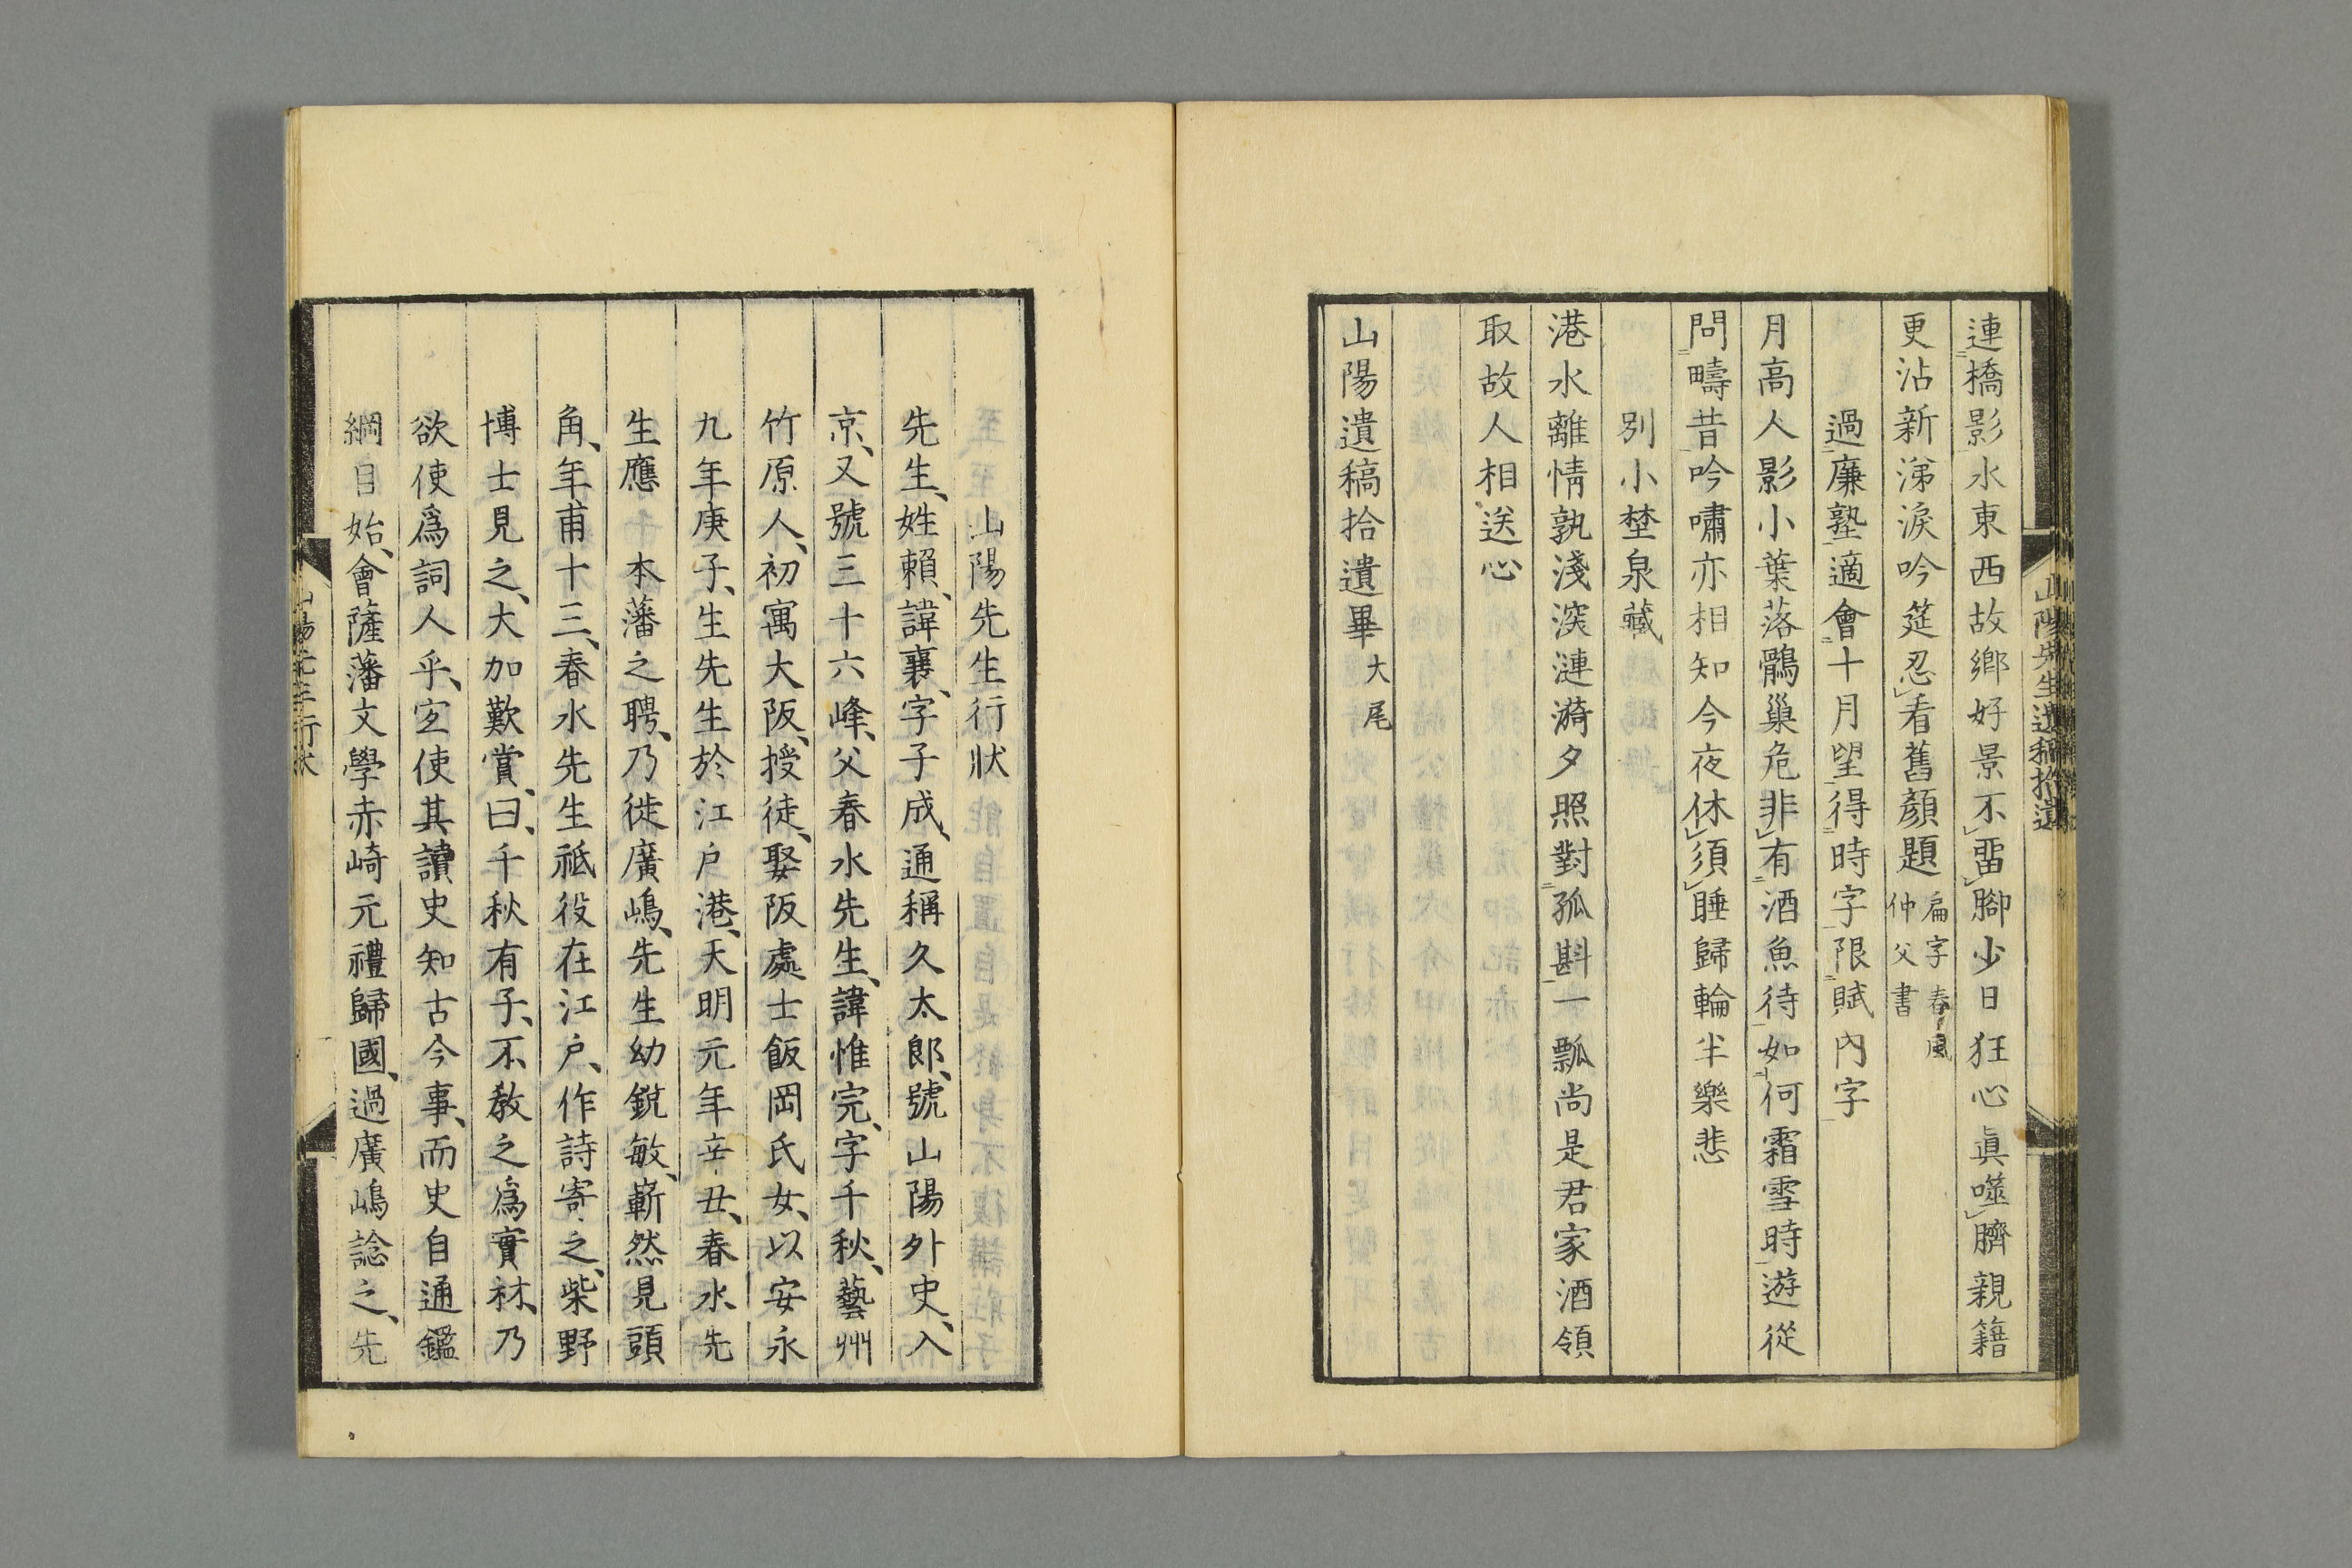 連橋影水東西故鄉好景不留腳少日狂心眞噬臍親籍
更沾新涕淚吟筵忍看舊顏題扁字春風仲父書
過廉塾適會十月望得時字限賦內字
月高人影小葉落鶻巢危非有酒魚待如何霜雪時遊從
問疇昔吟嘯亦相知今夜休須睡歸輪半樂悲
別小埜泉藏
港水離情孰淺深漣漪夕照對孤斟一瓢尚是君家酒領
取故人相送心
山陽遺稿拾遺畢大尾
山陽先生遺稿拾遺
山陽先生行狀
先生、姓賴、諱襄、字子成、通稱久太郎、號山陽外史、入
京、又號三十六峰、父春水先生、諱惟完、字千秋、藝州
竹原人、初寓大阪、授徒、娶阪處士飯岡氏女、以安永
九年庚子、生先生於江戶港、天明元年辛丑、春水先
生應 本藩之聘、乃徙廣嶋、先生幼銳敏、嶄然見頭
角、年甫十三、春水先生祗役在江戶、作詩寄之、柴野
博士見之、大加歎賞、曰、千秋有子、不敎之爲實材、乃
欲使爲詞人乎、宜使其讀史知古今事、而史自通鑑
綱目始、會薩藩文學赤崎元禮歸國、過廣嶋諗之、先
山陽先生行狀